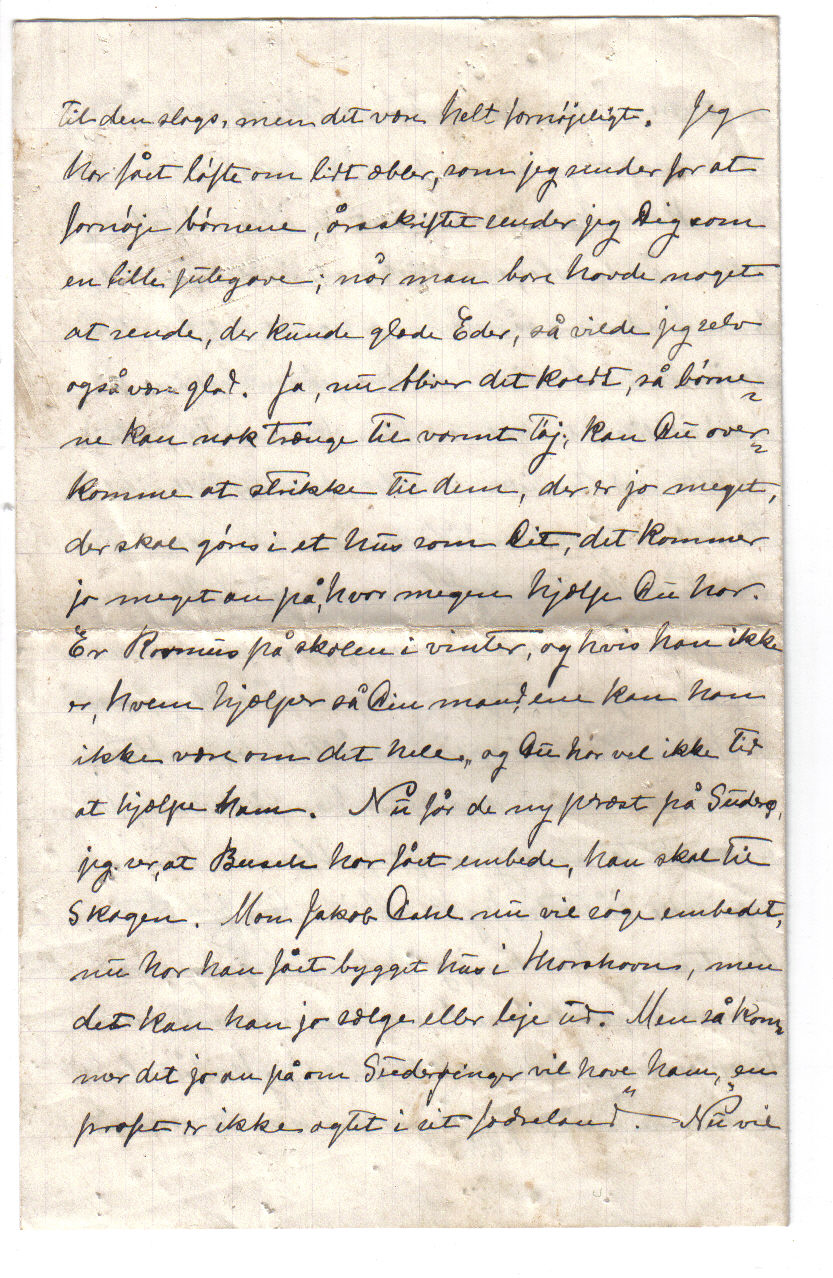 til den slags, men det være helt fornøjeligt. Jeg
har fået løfte om lidt æbler, som jeg sender for at
fornøje børnene, årsskriftet sender jeg Dig som
en lille julegave; når man bare havde noget
at sende, der kunde glæde Eder, så vilde jeg selv
også være glad. Ja, nu bliver det koldt, så børne=
ne kan nok trænge til varmt Tøj, kan Du over=
komme at strikke til dem, der er jo meget,
der skal gøres i et hus som Dit, det kommer
jo meget an på, hvor megen hjælp Du har.
Er Rasmus på skolen i vinter, og hvis han ikke
er, hvem hjælper så Din mand, ene kan han
ikke være om det hele, og Du har vel ikke tid
at hjælpe ham. Nu får de ny præst på Suderø,
jeg ser, at Busch har fået embede, han skal til
Skagen. Mon Jakob Dahl nu vil søge embedet,
nu har han fået bygget hus i Thorshavn, men
det kan han jo sælge eller leje ud. Men så kom=
mer det jo an på om Suderøinger vil have ham, „en
profet er ikke agtet i sit fædreland". Nu vil